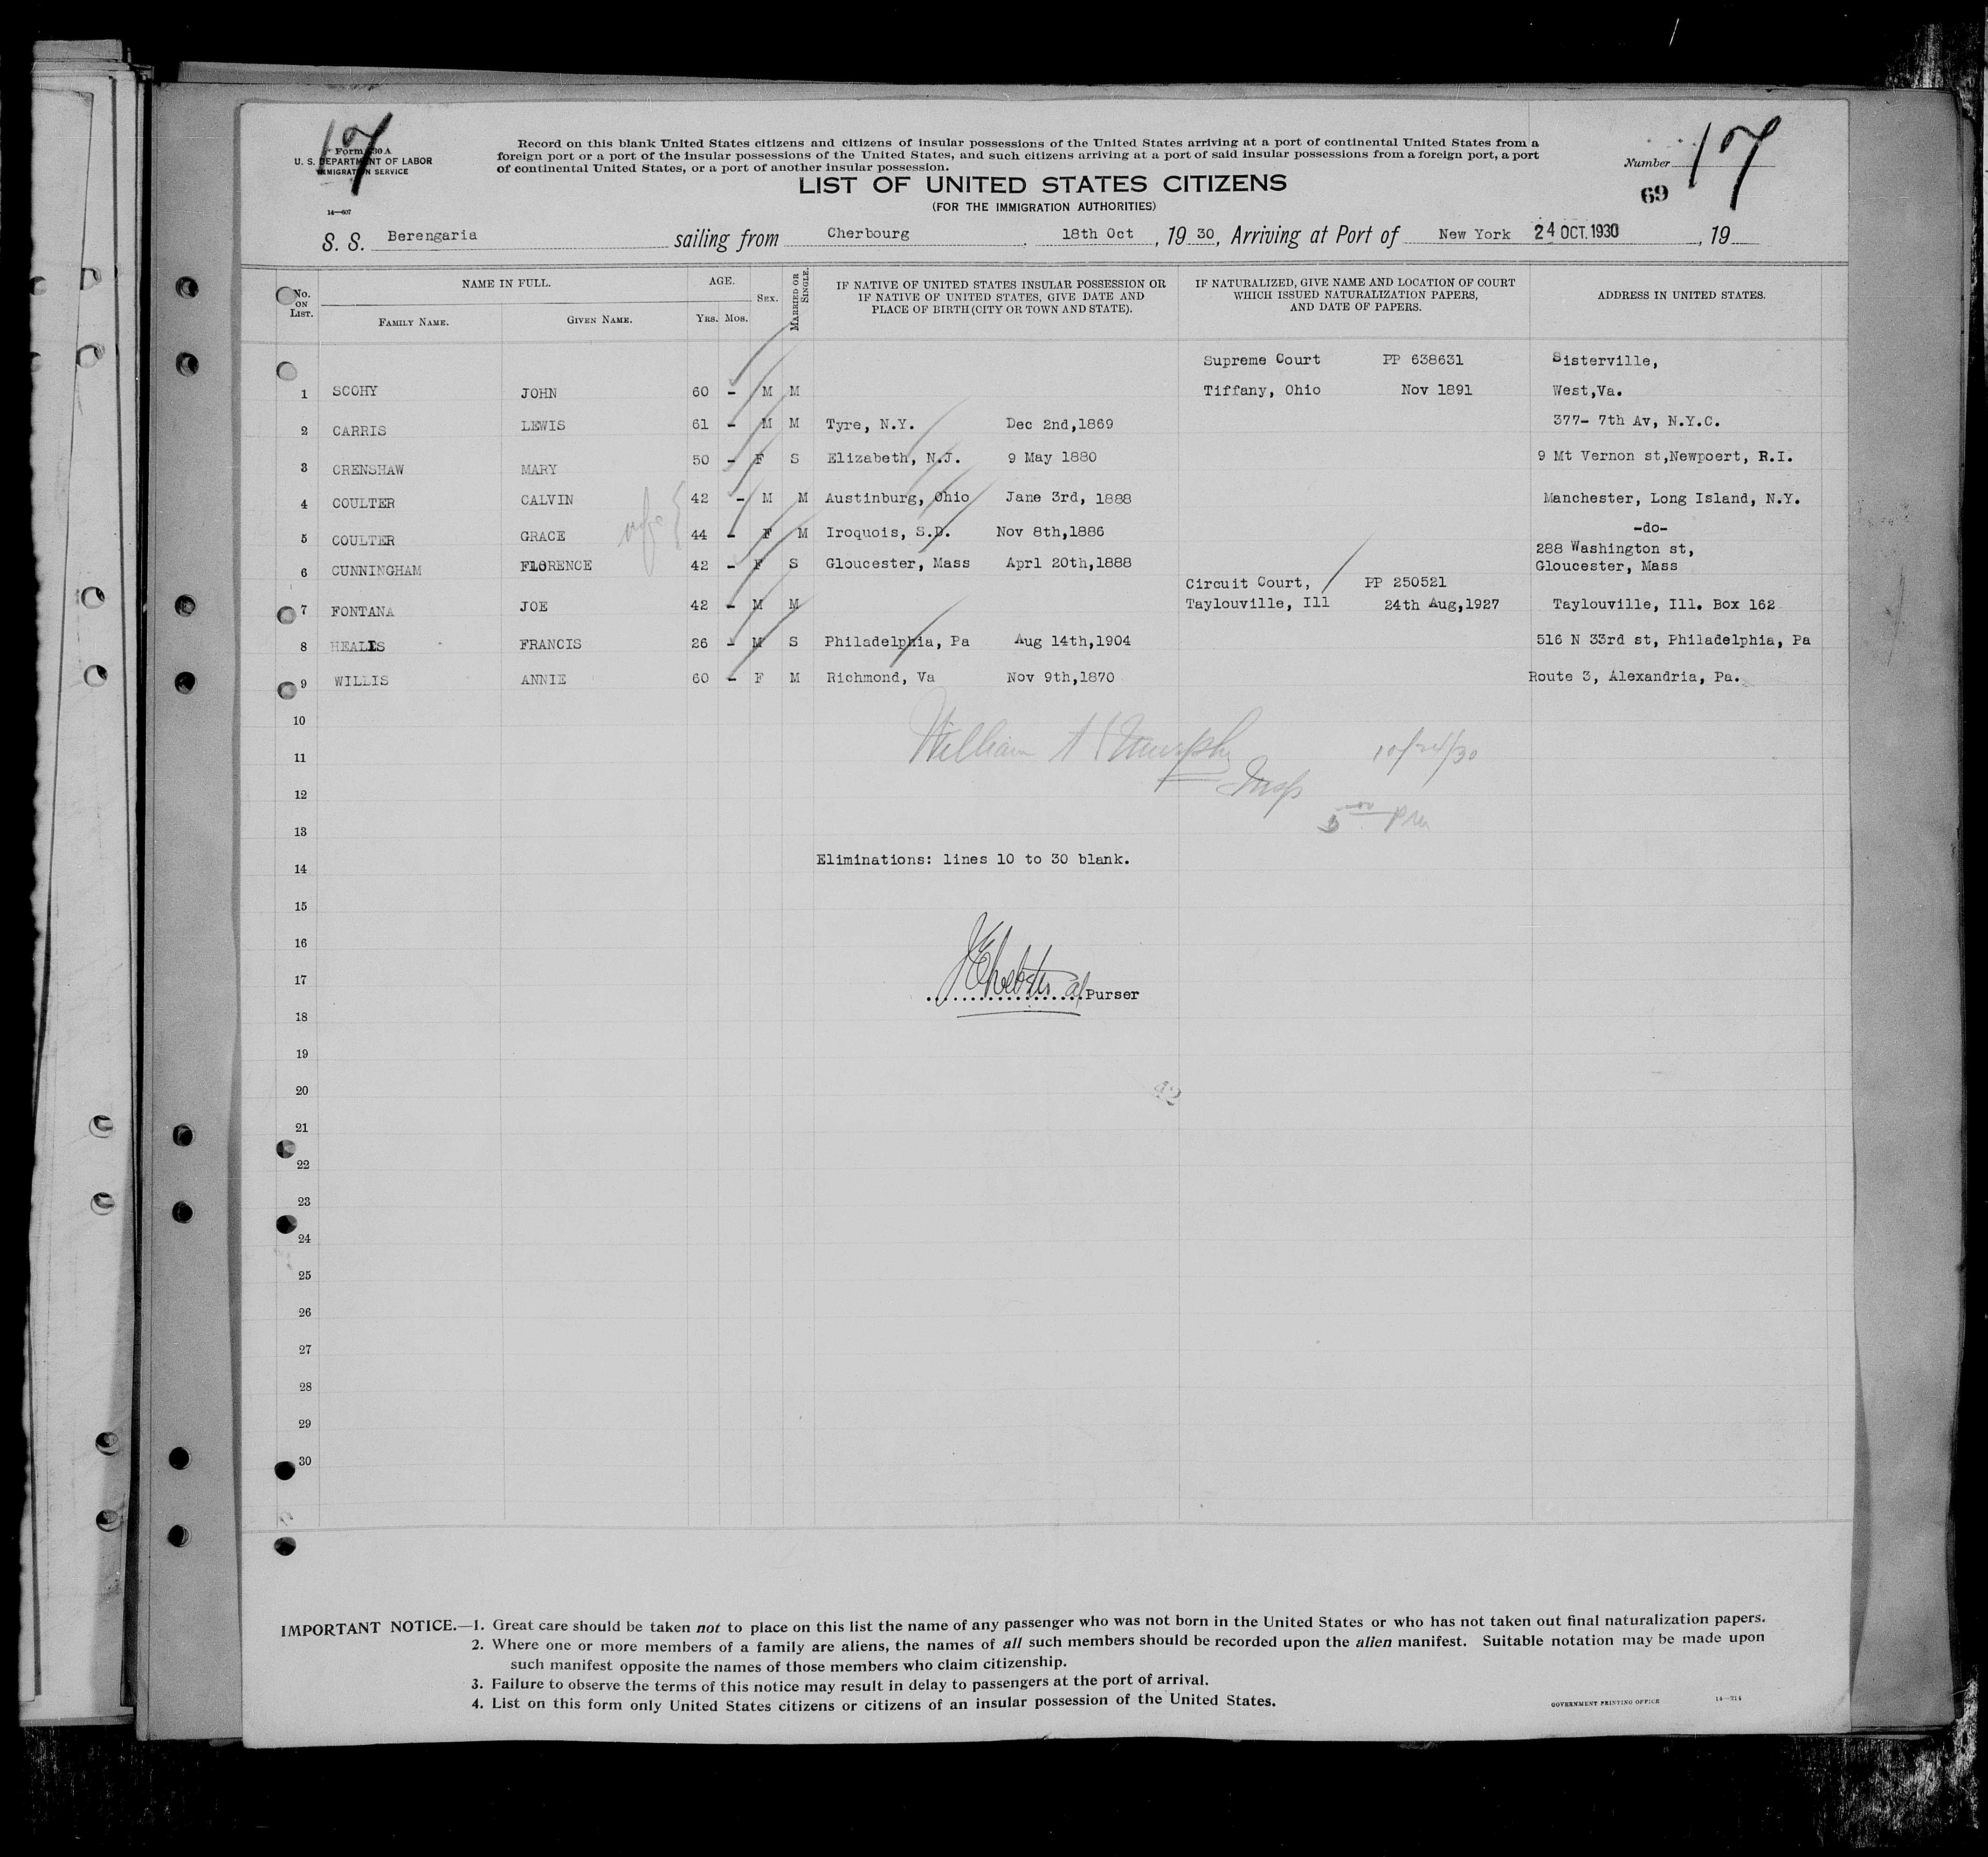 107
Form 630 A
U. S. DEPARTMENT OF LABOR
IMMIGRATION SERVICE
14—607
Record on this blank United States citizens and citizens of insular possessions of the United States arriving at a port of continental United States from a
foreign port or a port of the insular possessions of the United States, and such citizens arriving at a port of said insular possessions from a foreign port, a port
of continental United States, or a port of another insular possession.
Number 107
69
LIST OF UNITED STATES CITIZENS
(FOR THE IMMIGRATION AUTHORITIES)
S. S. Berengaria sailing from Cherbourg 18th Oct , 19 30, Arriving at Port of New York 24 OCT. 1930 , 19
No. ON LIST. NAME IN FULL. FAMILY NAME. GIVEN NAME. AGE. YRS. MOS. SEX. MARRIED OR SINGLE. IF NATIVE OF UNITED STATES INSULAR POSSESSION OR IF NATIVE OF UNITED STATES, GIVE DATE AND PLACE OF BIRTH (CITY OR TOWN AND STATE). IF NATURALIZED, GIVE NAME AND LOCATION OF COURT WHICH ISSUED NATURALIZATION PAPERS, AND DATE OF PAPERS. ADDRESS IN UNITED STATES.
Supreme Court PP 638631 Sisterville,
1 SCOHY JOHN 60 - M M Tiffany, Ohio Nov 1891 West,Va.
2 CARRIS LEWIS 61 - M M Tyre, N.Y. Dec 2nd,1869 377- 7th Av, N.Y.C.
3 CRENSHAW MARY 50 - F S Elizabeth, N.J. 9 May 1880 9 Mt Vernon st,Newpoert, R.I.
4 COULTER CALVIN 42 - M M Austinburg, Ohio Jane 3rd, 1888 Manchester, Long Island, N.Y.
wife {
5 COULTER GRACE 44 - F M Iroquois, S.D. Nov 8th,1886 -do-
288 Washington st,
6 CUNNINGHAM FLORENCE 42 - F S Gloucester, Mass Aprl 20th,1888 Gloucester, Mass
Circuit Court, PP 250521
7 FONTANA JOE 42 - M M Taylouville, Ill 24th Aug,1927 Taylouville, Ill. Box 162
8 HEALES FRANCIS 26 - M S Philadelphia, Pa Aug 14th,1904 516 N 33rd st, Philadelphia, Pa
9 WILLIS ANNIE 60 - F M Richmond, Va Nov 9th,1870 Route 3, Alexandria, Pa.
10
11 William H Murphy 10/24/30
12 Insp
13 5 00 PM
14 Eliminations: lines 10 to 30 blank.
15
16
17 Purser
18
19
20
21
22
23
24
25
26
27
28
29
30
IMPORTANT NOTICE.—1. Great care should be taken not to place on this list the name of any passenger who was not born in the United States or who has not taken out final naturalization papers.
2. Where one or more members of a family are aliens, the names of all such members should be recorded upon the alien manifest. Suitable notation may be made upon
such manifest opposite the names of those members who claim citizenship.
3. Failure to observe the terms of this notice may result in delay to passengers at the port of arrival.
4. List on this form only United States citizens or citizens of an insular possession of the United States.
GOVERNMENT PRINTING OFFICE 14—214